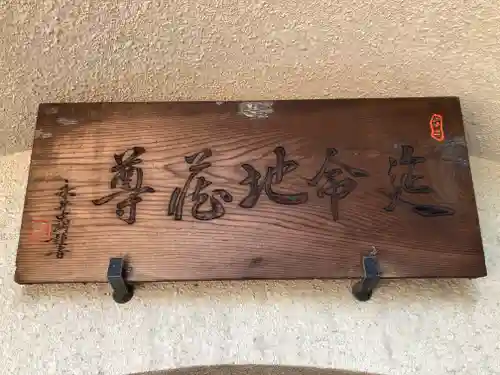 延命地蔵尊